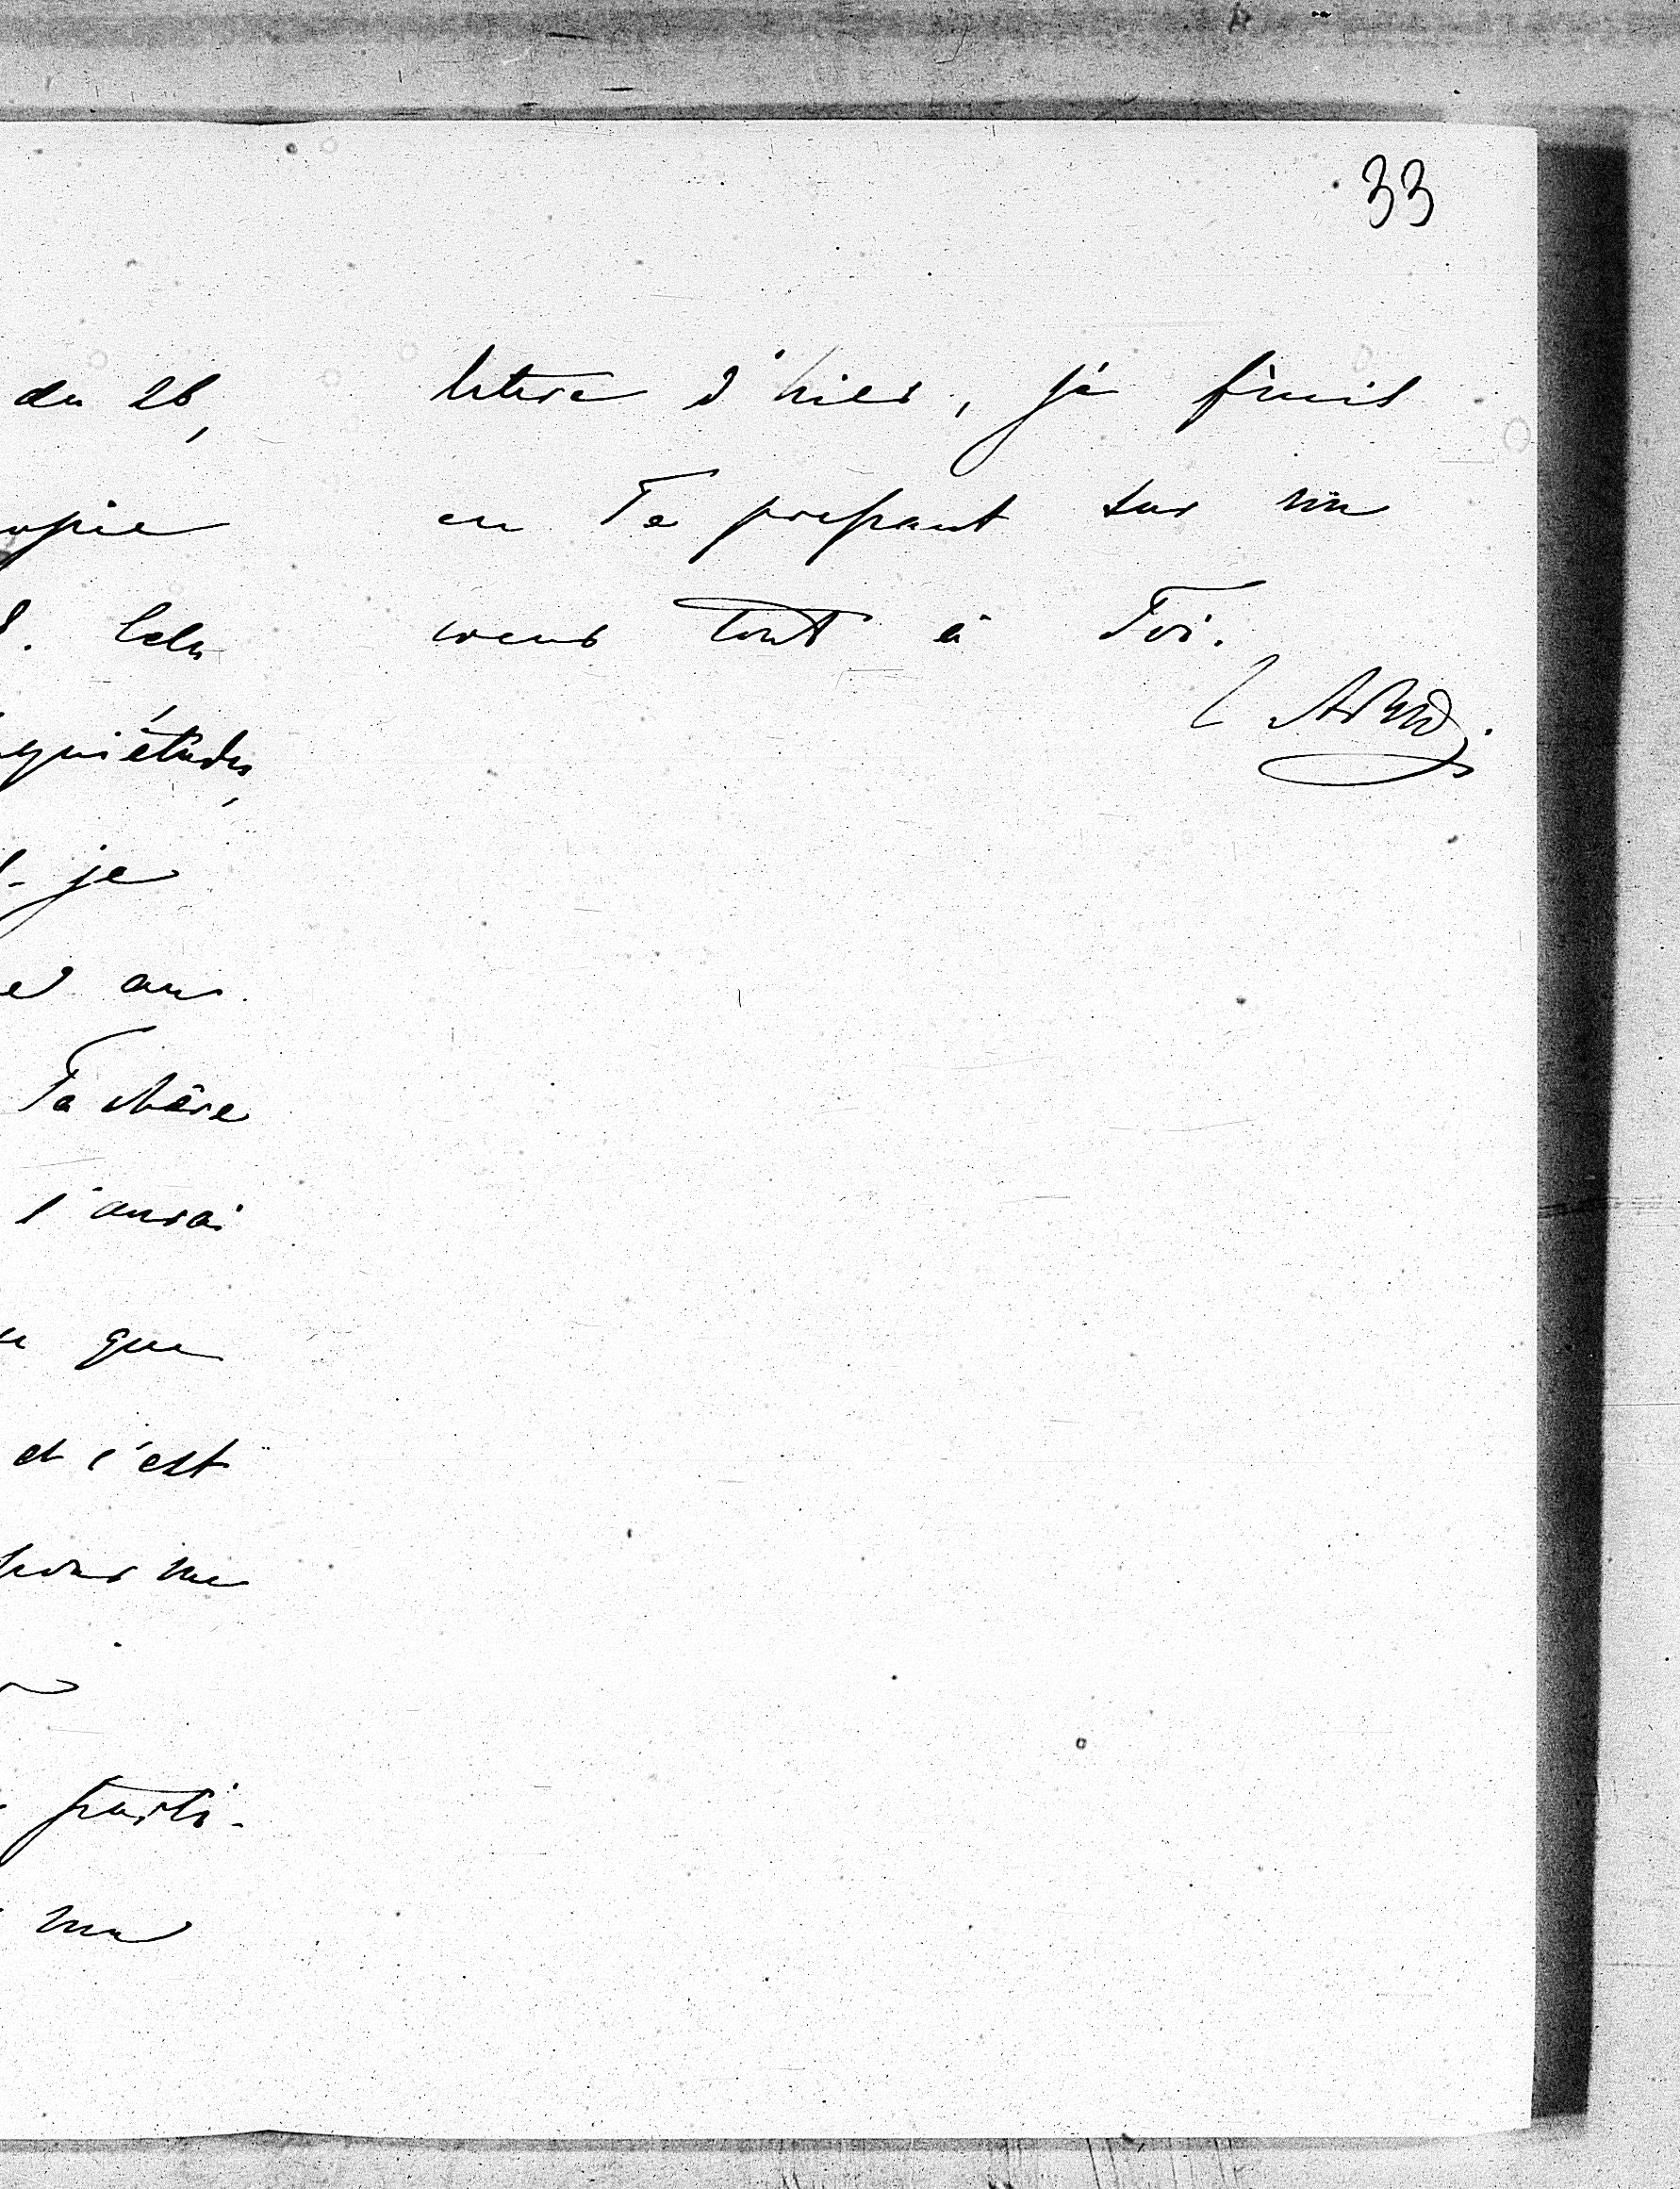 33
du 26,
copie
Cela
inquiétudes,
je
au
Ta chère
l'aurai
que
et c'est
pour me
parti-
ma
lettre d'hier, je finis
en Te pressant sur mon
coeur tout à Toi.